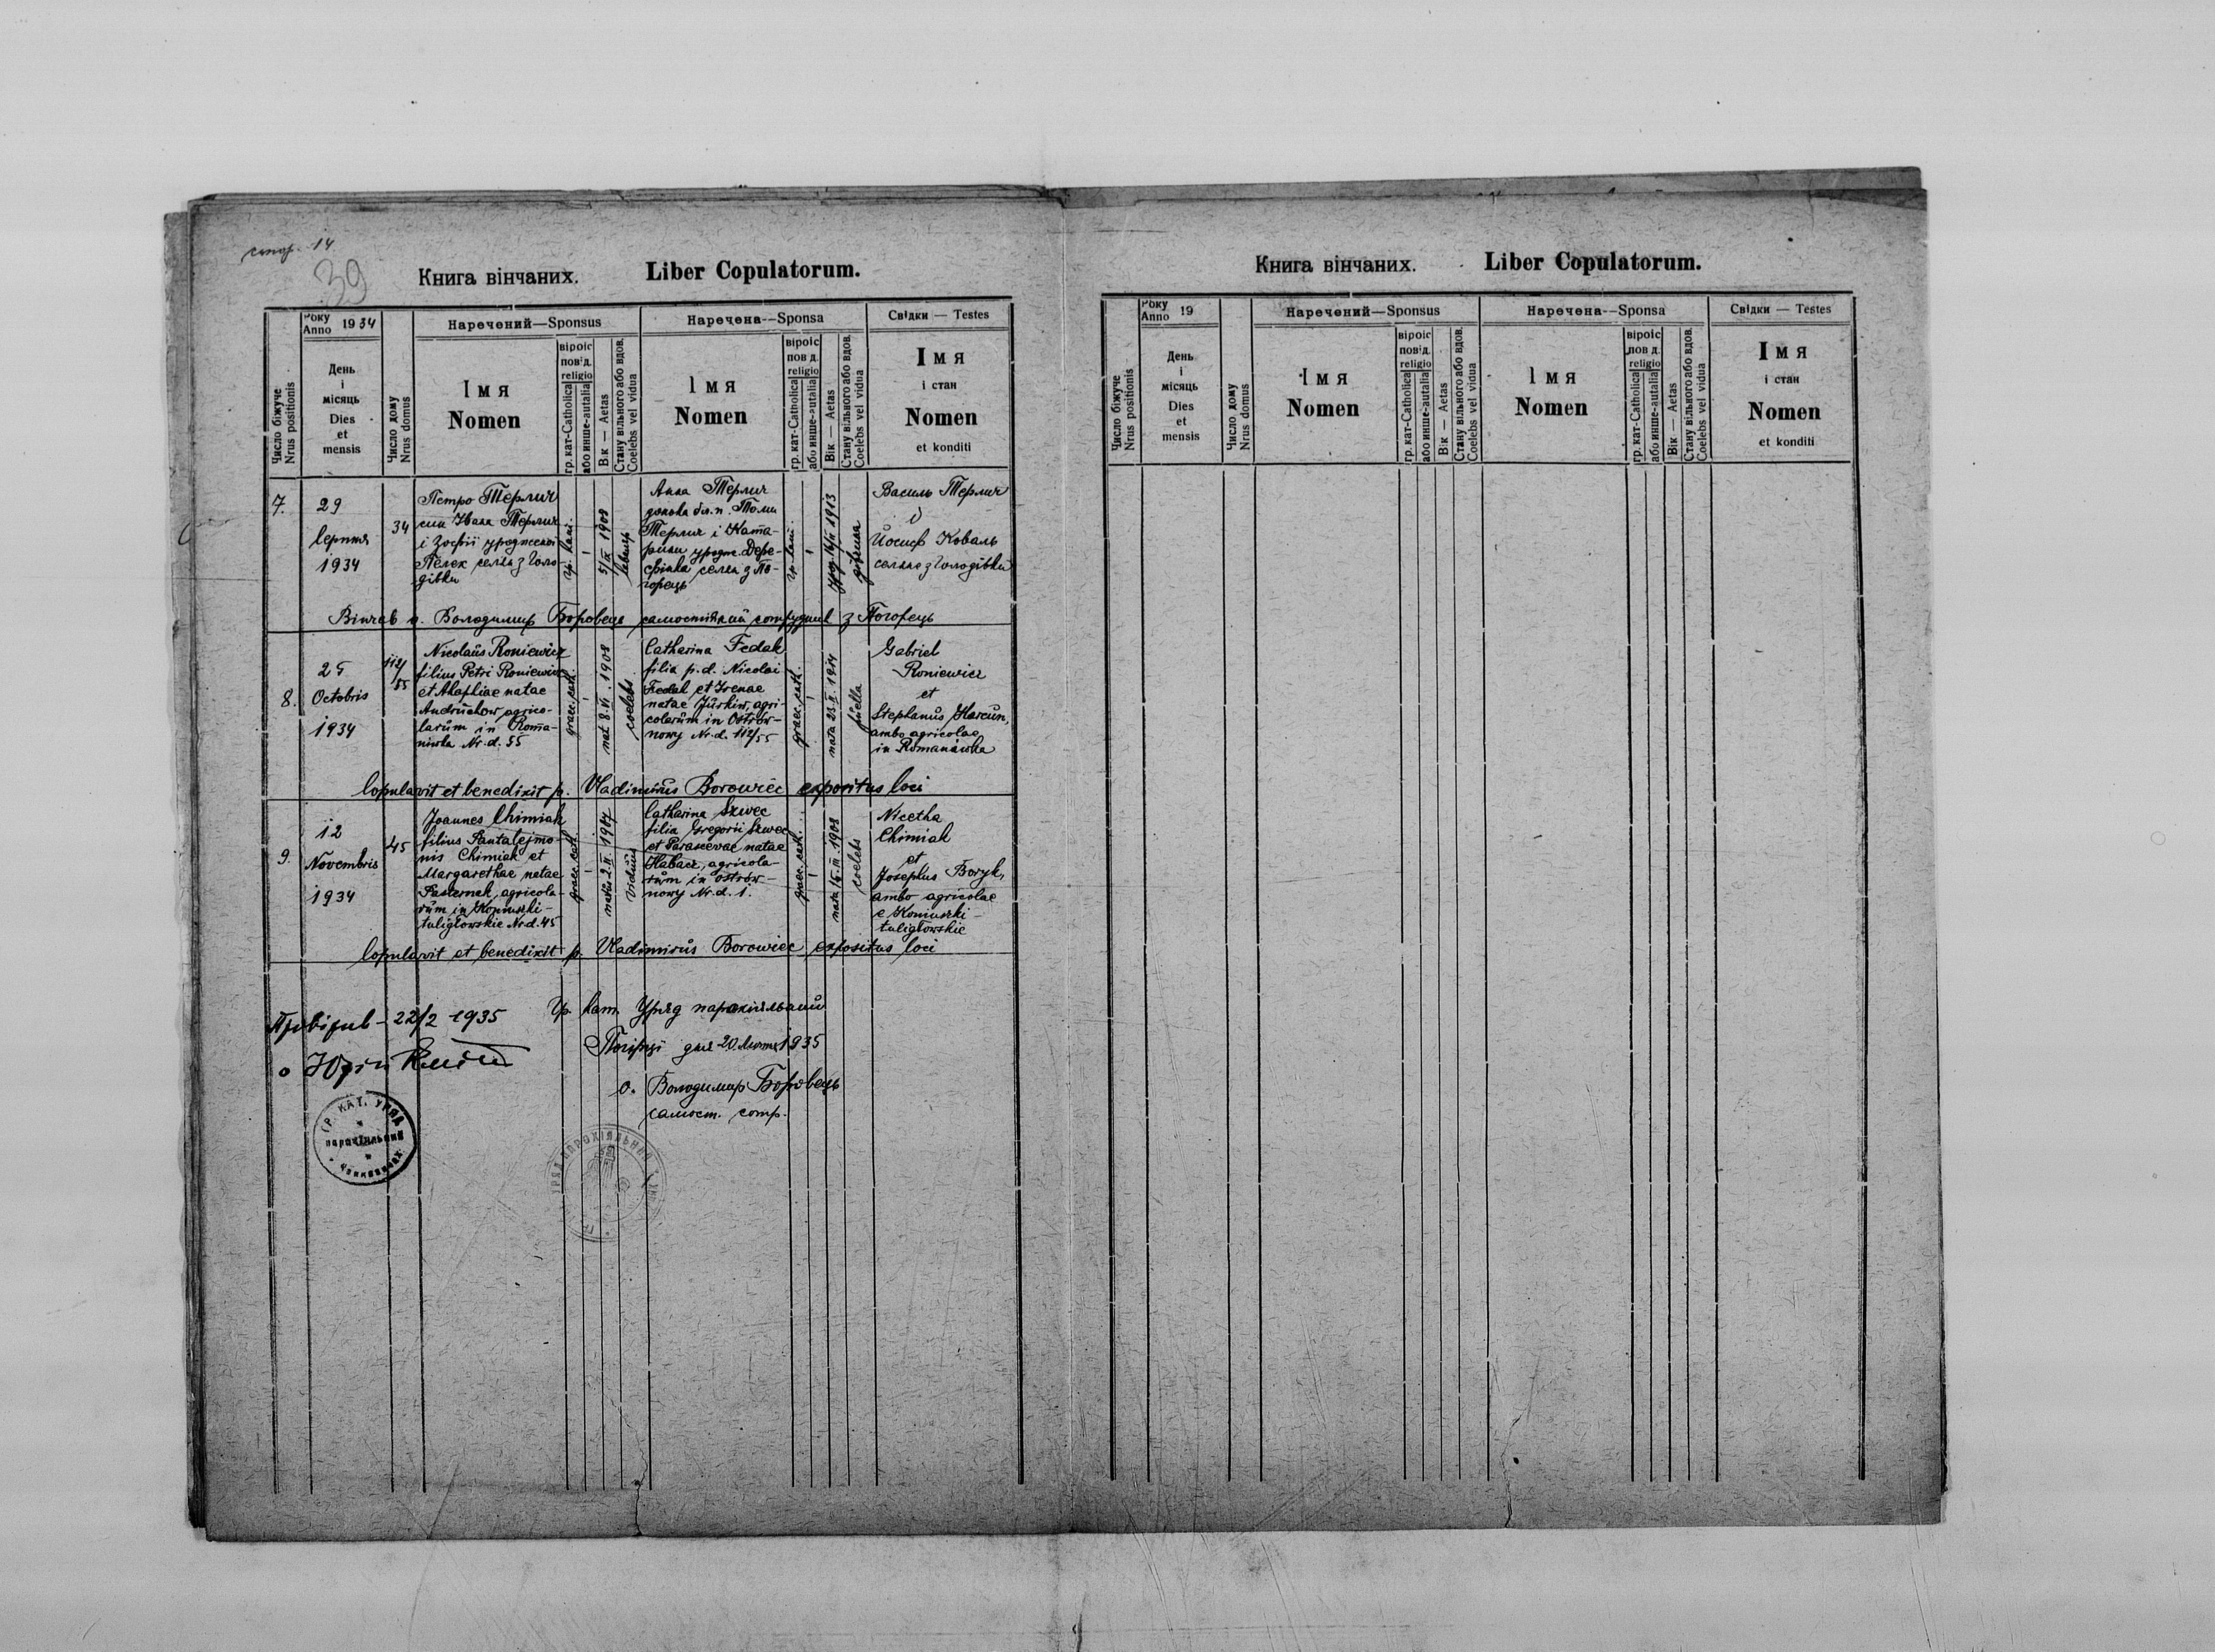 стор. 14
39
Книга вінчаних. Liber Copulatorum.
Число біжуче
Nrus positionis
Року
Anno 1934
День
і
місяць
Dies
et
mensis
Число дому
Nrus domus
Наречений—Sponsus
Імя
Nomen
віроіс
повід.
religio
гр. кат-Catholica
або инше-autalia
Вік — Aetas
Стану вільного або вдов.
Coelebs vel vidua
Наречена--Sponsa
Імя
Nomen
віроіс
пов д.
religio
гр. кат-Catholica
або инше-autalia
Вік — Aetas
Стану вільного або вдов.
Coelebs vel vidua
Свідки — Testes
Імя
і стан
Nomen
et konditi
7.
29
серпня
1934
34
Петро Терлич
син Івана Терлич
і Зофії уродженої
Пелех селян з Голо-
дівки
гр. кат.
5/IX 1908
Анна Терлич
донька бл. п. Томи
Терлич і Ката-
рини уродж. Дере-
селян з По-
горець
гр. кат.
1913
дівчина
Василь Терлич
і
Йосиф Коваль
селяне з Голодівки
Вінчав о. Володимир Боровець самостійний сотрудник з Погорець
8.
25
Octobris
1934
112/
55
Nicolaus Roniewicz
filius Petri Roniewicz
et Ahaphiae natae
Andruchow, agrico-
larum in Roma-
niwka Nr. d. 55
graec. cath.
nat 8.VI. 1908
coelebs
Catharina Fedak
filia p. d. Nicolai
Fedak et Irenae
natae Jurkiw, agri-
colarum in Ostrów-
nowy Nr. d. 112/55
graec. cath.
nata 23.X. 1914
puella
Gabriel
Roniewicz
et
Stephanus Harcun,
ambo agricolae
in Romanówka
Copulavit et benedixit p. Vladimirus Borowiec expositus loci
9.
12
Novembris
1934
45
Joannes Chimiak
filius Pantalejmo-
nis Chimiak et
Margarethae natae
Pasternak, agricola-
rum in Koniuszki-
tuligłowskie Nr. d. 45
graec. cath.
natus 2.II. 1907
viduus
Catharina Szwec
filia Gregorii Szwec
et Parascevae natae
Habacz, agricola-
rum in Ostrów-
nowy Nr. d. 1.
graec. cath.
nata 15.III. 1908
coelebs
Nicetha
Chimiak
et
Josephus Boryk,
ambo agricolae
e Koniuszki-
tuligłowskie
Copulavit et benedixit p. Vladimirus Borowiec expositus loci
Провірив - 22/2 1935
о Юрій
Гр. кат. Уряд парохіяльний
Погірці дня 20. Лютня 1935
о. Володимир Боровець
самост. сотр.
ГР. КАТ. УРЯД
парохіяльний
Книга вінчаних. Liber Copulatorum.
Число біжуче
Nrus positionis
Року
Anno 19
День
і
місяць
Dies
et
mensis
Число дому
Nrus domus
Наречений—Sponsus
Імя
Nomen
віроіс
повід.
religio
гр. кат-Catholica
або инше-autalia
Вік — Aetas
Стану вільного або вдов.
Coelebs vel vidua
Наречена--Sponsa
Імя
Nomen
віроіс
пов д.
religio
гр. кат-Catholica
або инше-autalia
Вік — Aetas
Стану вільного або вдов.
Coelebs vel vidua
Свідки — Testes
Імя
і стан
Nomen
et konditi